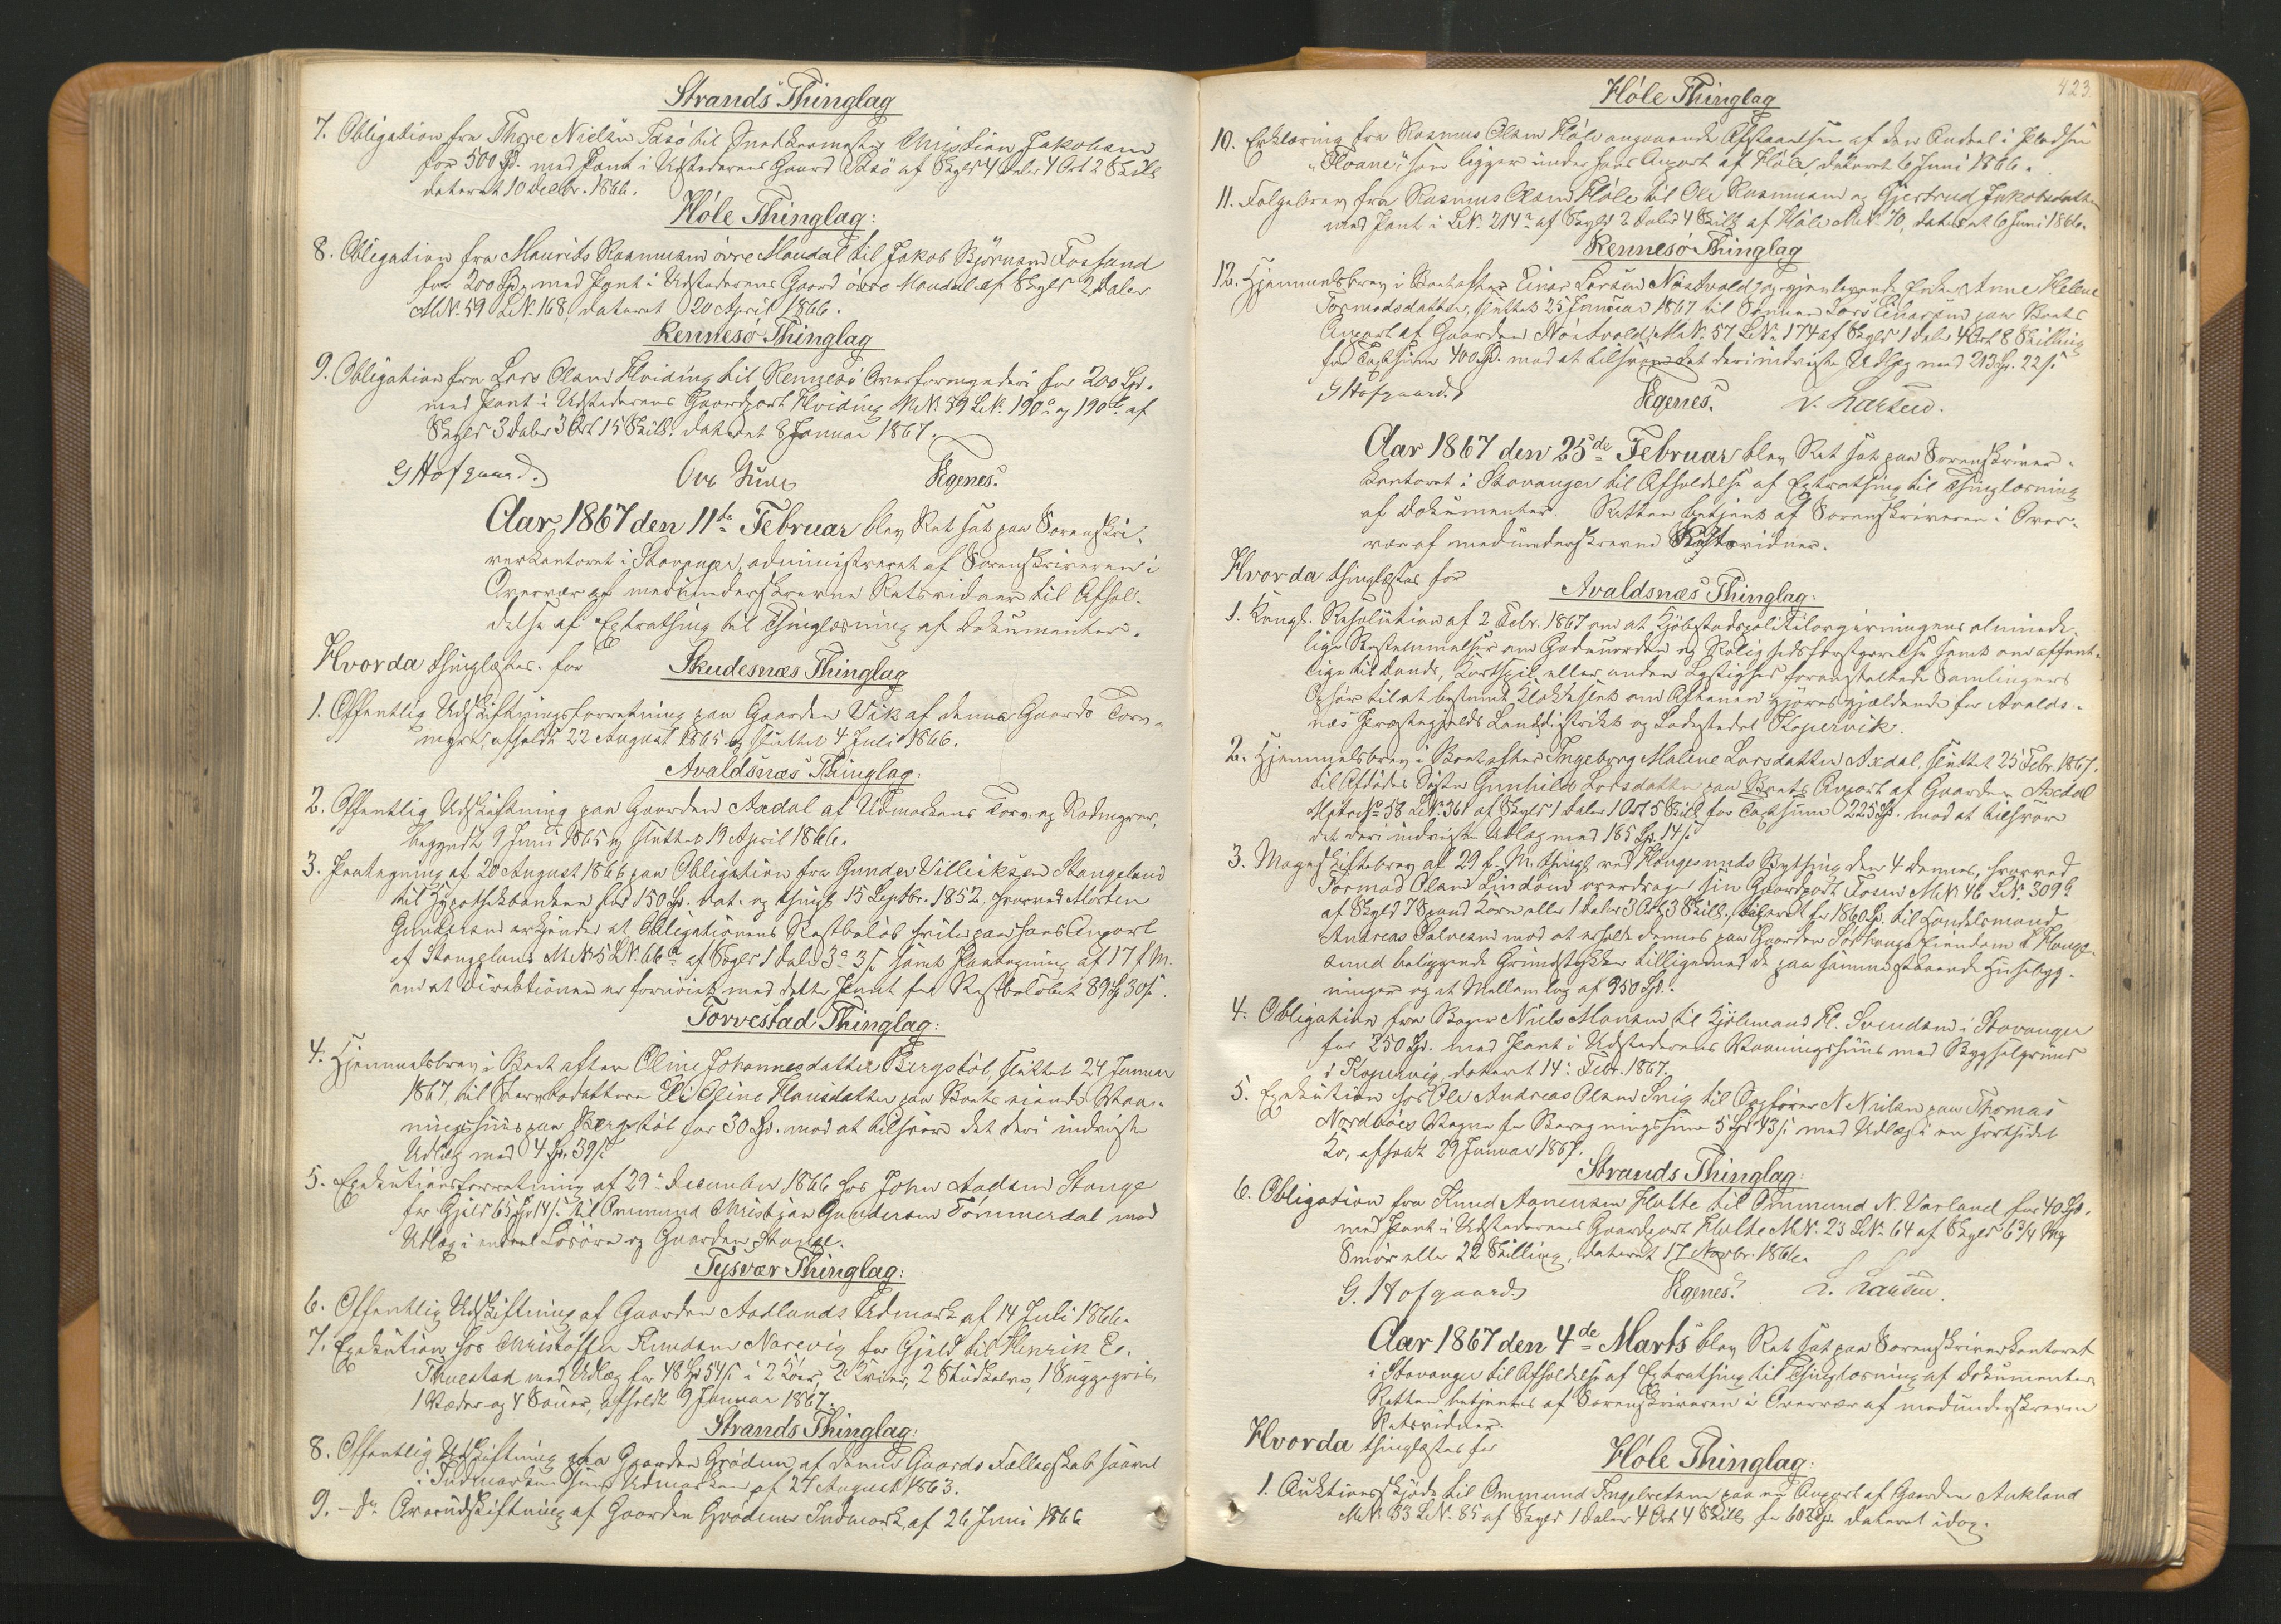 Strands Thinglag
7. Obligation fra Thore Nielsen Tasö til Snedkermester Christian Jakobsen
for 500 Spd. med Pant i Udstederens Gaard Tasö af Skyld 4 Daler 4 Ort 2 Skill
dateret 10 Decbr. 1866.
Höle Thinglag:
8. Obligation fra Maurits Rasmussen övre Maudal til Jakob Björnsen Fossand
for 200 Spd. med Pant i Udstederens Gaard övre Maudal af Skyld 2 Daler
M.N. 59 L.N. 168, dateret 20 April 1866.
Rennesö Thinglag
9. Obligation fra Lars Olsen Hviding til Rennesö Overformynderi for 200 Spd.
med Pant i Udstederens Gaardpart Hviding M.N. 59 L.N. 190a og 190b af
Skyld 3 Daler 3 Ort 15 Skill. dateret 8 Januar 1867.
G Hofgaard. Ove Egenes.
Aar 1867 den 11te Februar blev Ret sat paa Sorenskri-
verkontoret i Stavanger, administreret af Sorenskriveren i
Overvær af medunderskrevne Retsvidner til Afhol-
delse af Extrathing til Thinglæsning af Dokumenter.
Hvorda thinglæstes for Skudesnæs Thinglag
1. Offentlig Udskiftningsforretning paa Gaarden Vik af denne Gaards Torv-
myr, afholdt 22 August 1865 og sluttet 4 Juli 1866.
Avaldsnæs Thinglag:
2. Offentlig Udskiftning paa Gaarden Axdal af Udmarkens Torv og Rodmyrer,
begyndt 9 Juni 1865 og sluttet 19 April 1866.
3. Paategning af 20 August 1866 paa Obligation fra Gunder Villiksen Stangeland
til Hypothekbanken for 150 Spd. dat. og thingl. 15 Septbr. 1852, hvorved Morten
Gundersen erkjender at Obligationens Restbelöb hviler paa hans Anpart
af Stangeland M.N. 5 L.N. 66a af Skyld 1 Daler 3 Ort 3 s samt Paategning af 17 f. M.
om at Direktionen er fornöiet med dette Pant for Restbelöbet 89 Spd 30 s.
Torvestad Thinglag:
4. Hjemmelsbrev i Boet efter Oline Johannesdatter Bergstöl, sluttet 24 Januar
1867, til Stervbodatteren Eline Hansdatter paa Boets eiende Vaa-
ningshuus paa Bergstöl for 30 Spd. mod at tilsvare det deri indviste
Udlæg med 4 Spd. 39 s
5. Exekutionsforretning af 29 December 1866 hos John Aadsen Stange
for Gjeld 65 Spd 14 s til Ommund Christian Gundersen Tömmerdal med
Udlæg i endeel Lösöre og Gaarden Stange.
Tysvær Thinglag:
6. Offentlig Udskiftning af Gaarden Aadlands Udmark af 14 Juli 1866.
7. Exekution hos Christoffer Knudsen Narevig for Gjeld til Henrik E.
Thuestad med Udlæg for 48 Spd 54 s i 2 Köer, 2 Kvier, 2 Studkalve, 1 Suggegris,
1 Væder og 4 Souer, afholdt 9 Januar 1867.
Strands Thinglag:
8. Offentlig Udskiftning paa Gaarden Grödem af denne Gaards Fællesskab saavel
i Indmarken som Udmarken af 24 August 1863.
9. – do Overudskiftning af Gaarden Grödems Indmark, af 26 Juni 1866
423
Höle Thinglag
10. Erklæring fra Rasmus Olsen Höle angaaende Afstaaelsen af den Andeel i Pladsen
"Floane", som ligger under hans Anpart af Höle, dateret 6 Juni 1866.
11. Fölgebrev fra Rasmus Olsen Höle til Ole Rasmussen og Gjertrud Jakobsdatter
med Pant i L.N. 214a af Skyld 2 Daler 4 Skill af Höle M.N. 70, dateret 6 Juni 1866.
Rennesö Thinglag
12. Hjemmelsbrev i Boet efter Einar Larsen Nöstvold og gjenlevende Enke Anne Helene
Tormodsdatter, sluttet 25 Januar 1867 til Sönnen Lars Einarsen paa Boets
Anpart af Gaarden Nöstvold, M.N. 57, L.N. 174 af Skyld 1 Daler 4 Ort 8 Skilling
for Taxtsum 400 Spd. mod at tilsvare det deri indviste Udlæg med 213 Spd. 22 s
G Hofgaard. Egenes. L. Larsen.
Aar 1867 den 25de Februar blev Ret sat paa Sorenskriver-
kontoret i Stavanger til Afholdelse af Extrathing til Thinglæsning
af Dokumenter. Retten betjent af Sorenskriveren i Over-
vær af medunderskrevne Retsvidner.
Hvorda thinglæstes for Avaldsnæs Thinglag:
1. Kongl. Resolution af 2 Febr. 1867 om at Kjöbstadspolitilovgivningens alminde-
lige Bestemmelser om Gadeuorden og Roligheds Forstyrrelse samt om offent-
lige til Dands, Kortspil eller anden Lystighed foranstaltede Samlingers
Ophör til et bestemt Klokkeslet om Aftenen gjöres gjældende for Avalds-
næs Præstegjelds Landdistrikt og Ladestedet Kopervik.
2. Hjemmelsbrev i Boet efter Ingeborg Malene Larsdatter Axdal, sluttet 25 Febr. 1867.
til Afdödes Söster Gunhild Larsdatter paa Boets Anpart af Gaarden Axdal
Matr. No 58 L.N. 361 af Skyld 1 Daler 1 Ort 5 Skill for Taxtsum 225 Spd. mod at tilsvare
det deri indviste Udlæg med 185 Spd. 14 s
3. Mageskiftebrev af 29 f. M. thingl. ved Haugesunds Bything den 4 dennes, hvorved
Tormod Olsen Lindöen overdrager sin Gaardpart Fosen M.N. 46 L.N. 309b
af Skyld 7 Spand Korn eller 1 Daler 3 Ort 3 Skill. for 1860 Spd. til Handelsmand
Andreas Salvesen mod at erholde dennes paa Gaarden Sörhauge Eiendom i Hauge-
sund beliggende Grundstykke tilligemed de paa samme staaende Husebyg-
ninger og et Mellemlag af 950 Spd.
4. Obligation fra Bager Niels Monsen til Kjöbmand H. Svendsen i Stavanger
for 250 Spd. med Pant i Udstederens Vaaningshuus med Bygselgrund
i Kopervig, dateret 14 Febr. 1867.
5. Exekution hos Ole Andreas Olsen Snig til Sagförer N Nielsen paa Thomas
Nordböes Vegne for Beregningssum 5 Spd 43 s med Udlæg i en sortsidet
Ko, afholdt 29 Januar 1867.
Strands Thinglag:
6. Obligation fra Knud Aanensen Holte til Ommund N. Varland for 40 Spd.
med Pant i Udstederens Gaardpart Holte M.N. 23 L.N. 64 af Skyld 6 3/4 Mk
Smör eller 22 Skilling, dateret 17 Novbr. 1866.
G. Hofgaard Egenes. L. Larsen.
Aar 1867 den 4de Marts blev Ret sat paa Sorenskriverkontoret
i Stavanger til Afholdelse af Extrathing til Thinglæsning af Dokumenter
Retten betjentes af Sorenskriveren i Overvær af medunderskrevne
Retsvidner.
Hvorda thinglæstes for Höle Thinglag:
1. Auktionsskjöde til Ommund Ingebretsen paa en Anpart af Gaarden Aukland
M.N. 33 L.N. 85 af Skyld 1 Daler 4 Ort 4 Skill for 602 Spd. dateret idag.